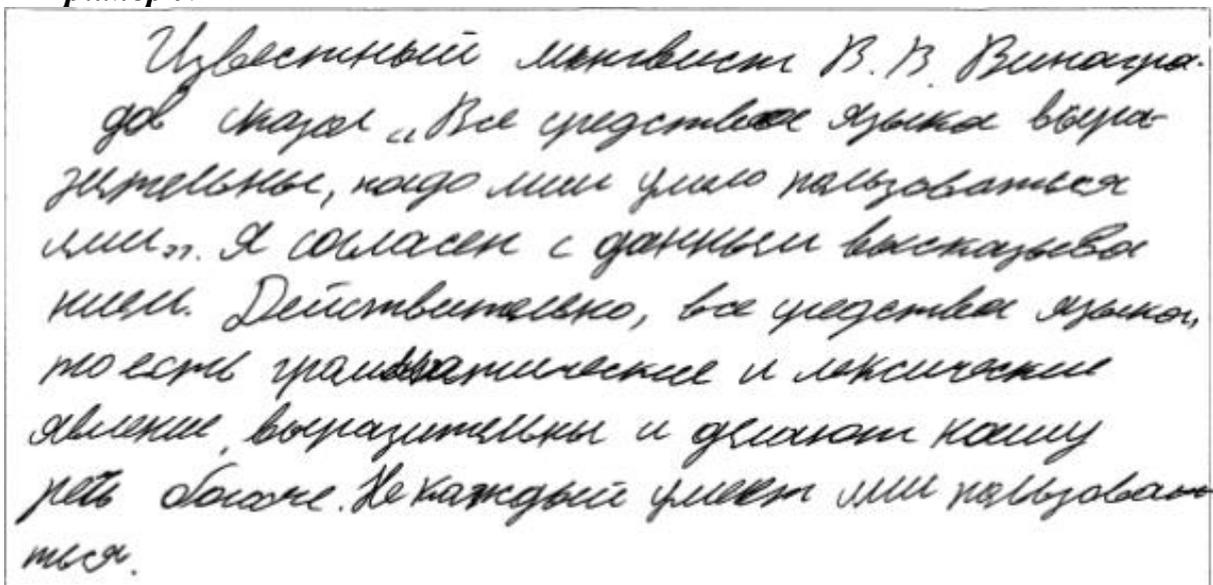 Известный лингвист В. В. Виногра-
дов сказал „Все средства языка выра-
зительны, надо лишь умело пользоваться
ими„. Я согласен с данным высказыва
нием. Действительно, все средства языка,
то есть грамматические и лексические
явление, выразительны и делают нашу
речь богаче. Не каждый умеет ими пользоват-
ться.